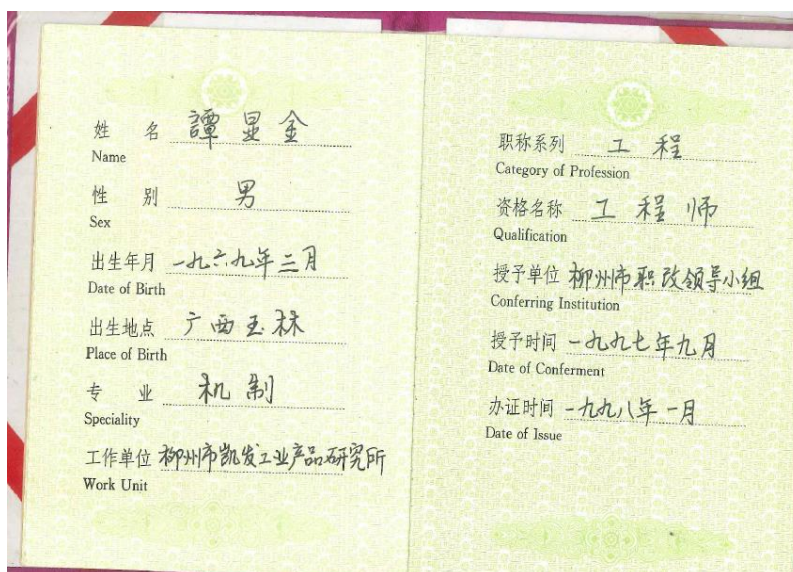 姓 名 譚显金
Name
性 别 男
Sex
出生年月 一九六九年三月
Date of Birth
出生地点 广西玉林
Place of Birth
专 业 机制
Speciality
工作单位 柳州市凯发工业产品研究所
Work Unit
职称系列 工程
Category of Profession
资格名称 工程师
Qualification
授予单位 柳州市职改领导小组
Conferring Institution
授予时间 一九九七年九月
Date of Conferment
办证时间 一九九八年一月
Date of Issue